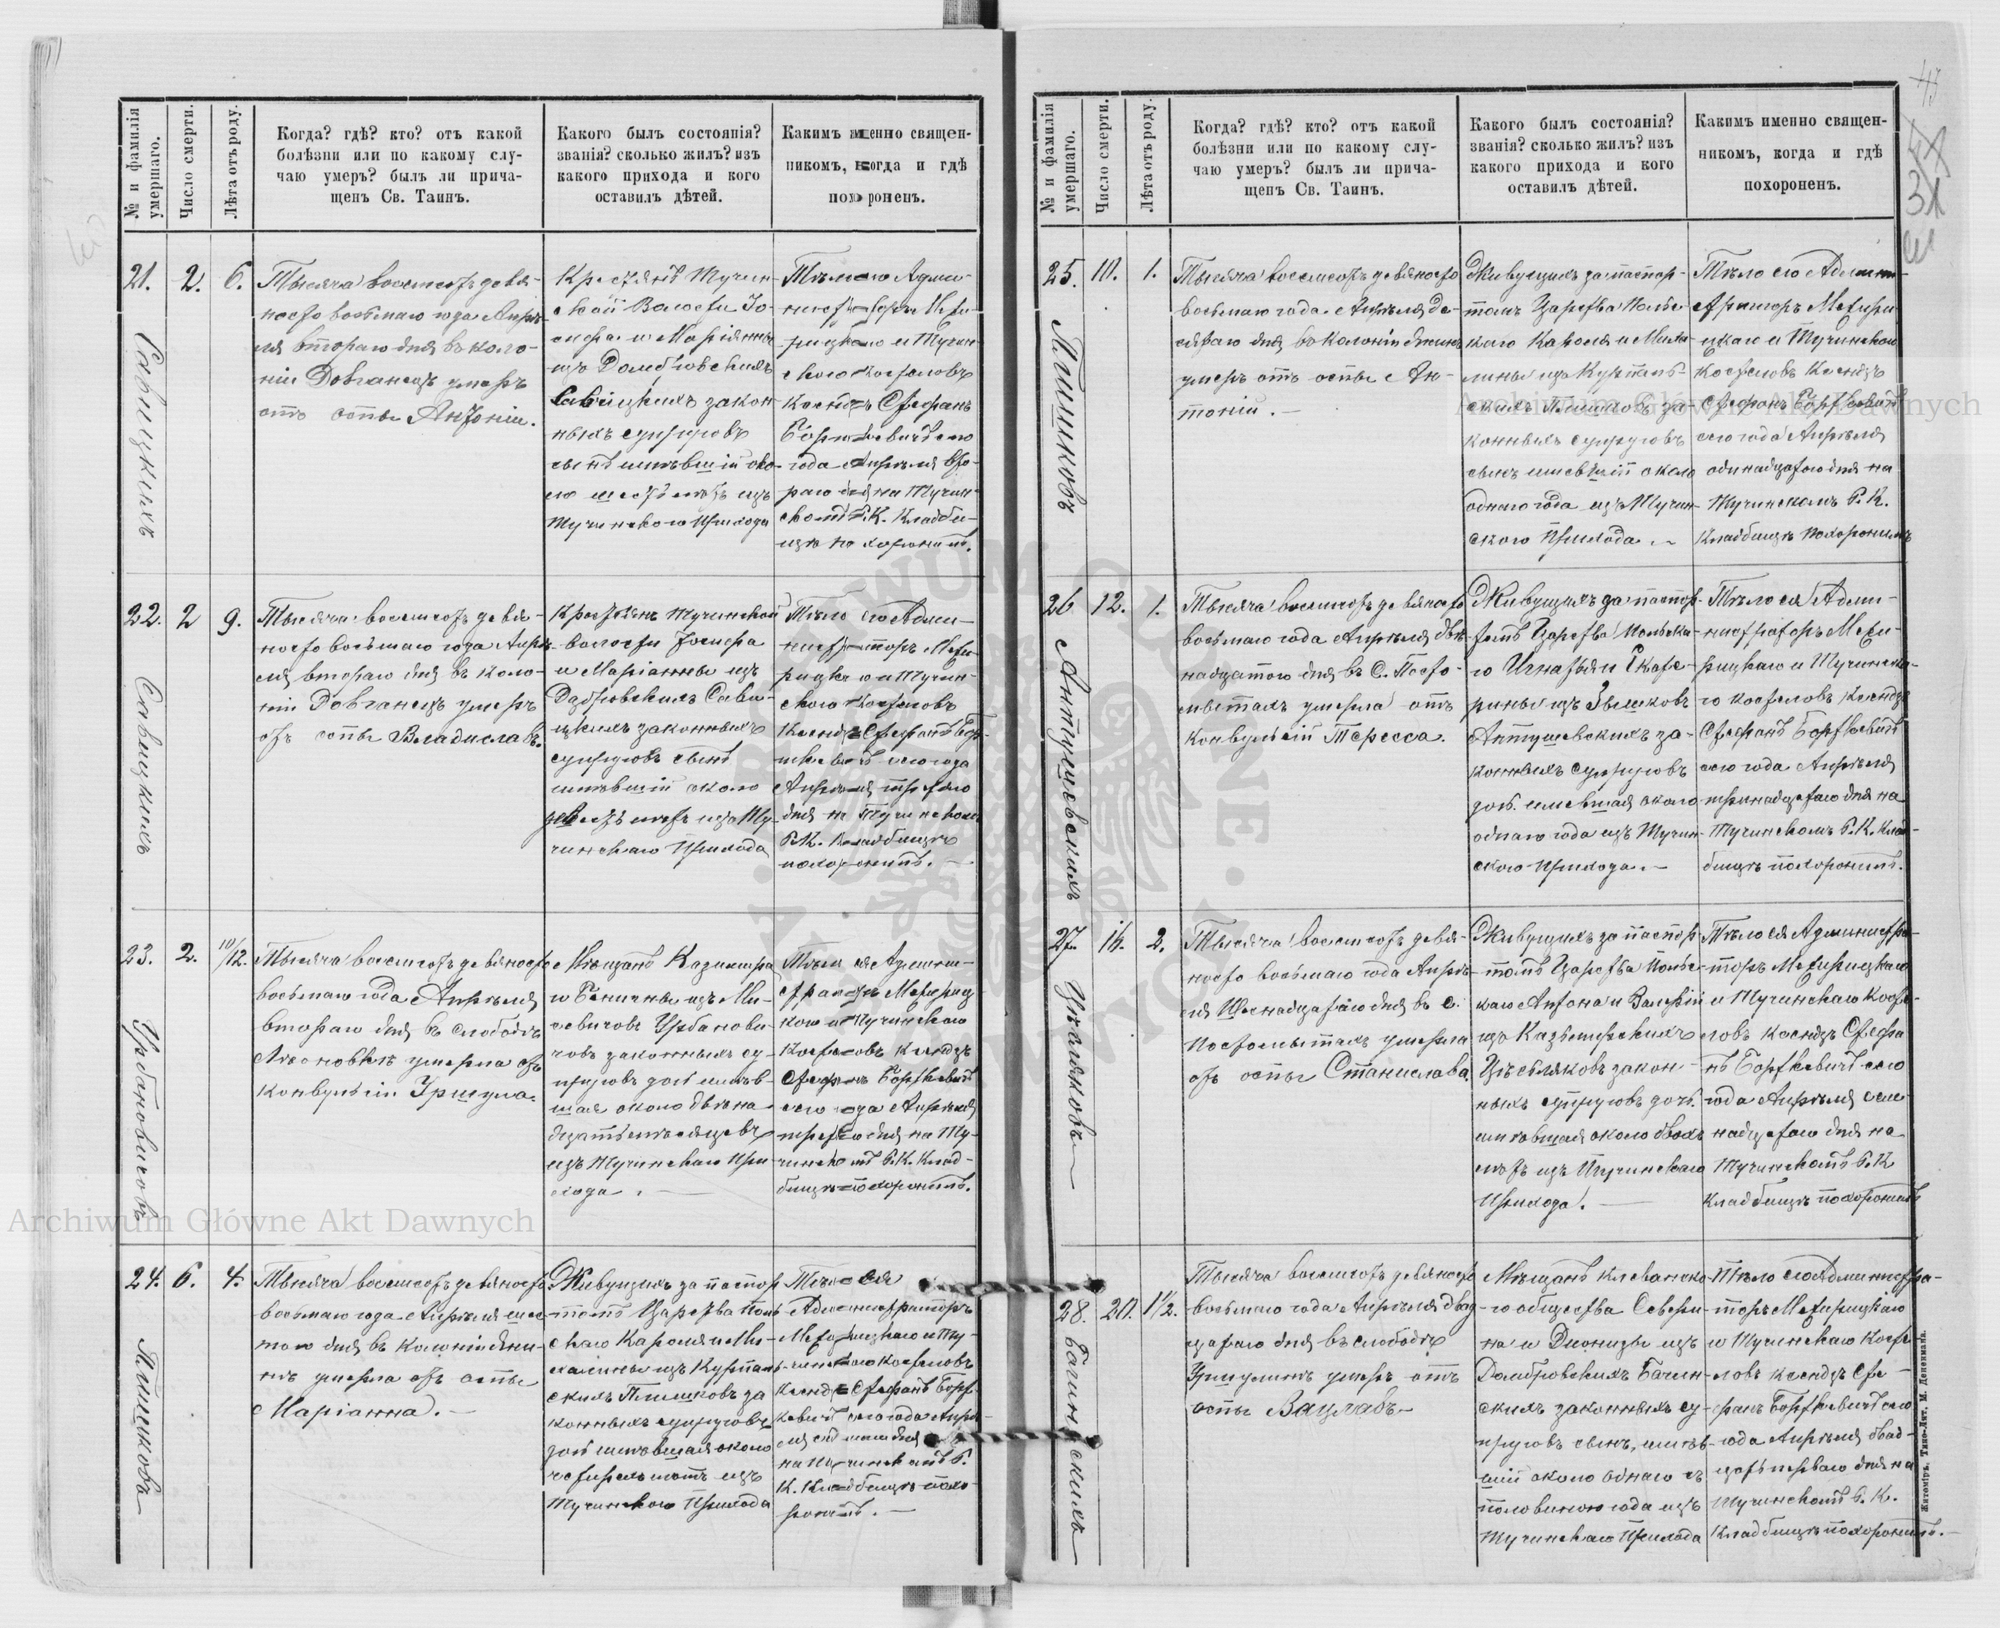 № и фамилія умершаго.
Число смерти.
Лѣта отъ роду.
Когда? гдѣ? кто? отъ какой
болѣзни или по какому слу-
чаю умеръ? былъ ли прича-
щенъ Св. Таинъ.
Какого былъ состоянія?
званія? сколько жилъ? изъ
какого прихода и кого
оставилъ дѣтей.
Какимъ именно священ-
никомъ, когда и гдѣ
похороненъ.
21.
Савицкихъ
2.
6.
Тысяча восемсотъ девя-
носто восьмаго года Апрѣ-
ля втораго дня въ коло-
ніи Довганецъ умеръ
отъ оспы Антоній.
Крестянъ Тучин-
ской Волости Іо-
сифа и Маріянны
изъ Домбровскихъ
Савицкихъ закон-
ныхъ супруговъ
сынъ имѣвшій око-
ло шесть лѣтъ изъ
Тучинского Прихода
Тѣло его Адми-
нистраторъ Межи-
рицкаго и Тучин-
ского костеловъ
Ксендзъ Стефанъ
Борткевичъ сего
года Апрѣля вто-
раго дня на Тучин-
скомъ Р. К. Кладби-
щѣ похоронилъ.
22.
Савицкихъ
2
9.
Тысяча восемсотъ девя-
носто восьмаго года Апрѣ-
ля втораго дня въ коло-
ніи Довганецъ умеръ
отъ оспы Владиславъ.
Крестьянъ Тучинской
волости Іосифа
и Маріанны изъ
Домбровскихъ Сави-
цкихъ законныхъ
супруговъ сынъ
имѣвшій около
девять лѣтъ изъ Ту-
чинскаго Прихода
Тѣло его Адми-
нистраторъ Межи-
рицкаго и Тучин-
ского костеловъ
Ксендзъ Стефанъ Бор-
ткевичъ сего года
Апрѣля третяго
дня на Тучинскомъ
Р. К. Кладбищѣ
похоронилъ.
23.
Урбановичовъ
2.
10/12.
Тысяча восемсотъ девяносто
восьмаго года Апрѣля
втораго дня въ слободѣ
умерла отъ
конвульсіи Уршула.
Мѣщанъ Казимира
и изъ Ми-
севичовъ Урбанови-
човъ законныхъ су-
пруговъ дочь имѣв-
шая около двѣна-
дцать мѣсяцевъ
изъ Тучинскаго При-
хода.
Тѣло ея Админи-
страторъ Межириц-
кого и Тучинскаго
Костеловъ Ксендзъ
Стефанъ Борткевичъ
сего года Апрѣля
третяго дня на Ту-
чинскомъ Р. К. Клад-
бищѣ похоронилъ.
24.
Пишкова
6.
4.
Тысяча восемсотъ девяносто
восьмаго года Апрѣля шес-
того дня въ колоніи
умерла отъ оспы
Маріанна.
Живущихъ за паспор-
томъ Царства Поль-
скаго Кароля и Ми-
халины изъ
Пишковъ за
конныхъ супруговъ
дочь имѣвшая около
четырехъ лѣтъ изъ
Тучинскаго Прихода
Тѣло ея
Администраторъ
Межирицкаго и Ту-
чинского костеловъ
Ксендзъ Стефанъ Борт-
кевичъ сего года Апрѣ-
ля седьмаго дня
на Тучинскомъ Р.
К. Кладбищѣ похо-
ронилъ.
31
№ и фамилія умершаго.
Число смерти.
Лѣта отъ роду.
Когда? гдѣ? кто? отъ какой
болѣзни или по какому слу-
чаю умеръ? былъ ли прича-
щенъ Св. Таинъ.
Какого былъ состоянія?
званія? сколько жилъ? изъ
какого прихода и кого
оставилъ дѣтей.
Какимъ именно священ-
никомъ, когда и гдѣ
похороненъ.
25.
Пишковъ
10.
1.
Тысяча восемсотъ девяносто
восьмаго года Апрѣля де-
сятаго дня въ колоніи
умеръ отъ оспы Ан-
тоній.
Живущихъ за паспор-
томъ Царства Поль-
каго Кароля и Миха-
лины изъ
Пишковъ за-
конныхъ супруговъ
сынъ имевшій около
одного года изъ Тучин-
ского Прихода.
Тѣло его Админи-
страторъ Межири-
цкаго и Тучинскаго
Костеловъ Ксендзъ
Стефанъ Борткевичъ
сего года Апрѣля
одинадцатого дня на
Тучинскомъ Р. К.
Кладбищѣ похоронилъ
26
Антушевскихъ
12.
1.
Тысяча восемсотъ девяносто
восьмаго года Апрѣля двѣ-
надцатого дня въ С. Посто-
мытахъ умерла отъ
конвульсій Тересса.
Живущихъ за паспор-
томъ Царства Польска-
го Игнатья и Екате-
рины изъ
Антушевскихъ за-
конныхъ супруговъ
дочь имевшая около
одного года изъ Тучин-
ского Прихода.
Тѣло ея Адми-
нистраторъ Межи-
рицкаго и Тучинска-
го костеловъ Ксендзъ
Стефанъ Борткевичъ
сего года Апрѣля
тринадцатого дня на
Тучинскомъ Р. К. Клад-
бищѣ похоронилъ.
27.
16.
2.
Тысяча восемсотъ девя-
носто восьмаго года Апрѣ-
ля Шеснадцатаго дня въ с.
Постомытахъ умерла
отъ оспы Станислава.
Живущихъ за паспор-
томъ Царства Поль-
каго Антона и Валеріи
изъ
закон-
ныхъ супруговъ дочь
имѣвшая около двохъ
лѣтъ изъ Тучинскаго
Прихода.
Тѣло ея Администра-
торъ Межирицкаго
и Тучинскаго Косте-
ловъ Ксендзъ Стефа-
нъ Борткевичъ сего
года Апрѣля сем-
надцатаго дня на
Тучинскомъ Р. К
Кладбищѣ похоронилъ
28.
Багинскихъ
20.
1½.
Тысяча восемсотъ девяносто
восьмаго года Апрѣля двад-
цатаго дня въ слободѣ
умеръ отъ
оспы Вацлавъ.
Мѣщанъ Клеванско-
го общества Севери-
на и Діонизы изъ
Домбровскихъ Багин-
скихъ законныхъ су-
пруговъ сынъ, имѣв-
шій около одного съ
половиною года изъ
Тучинскаго Прихода
Тѣло его Администра-
торъ Межирицкаго
и Тучинскаго Косте-
ловъ ксендзъ Сте-
фанъ Борткевичъ сего
года Апрѣля двад-
цать перваго дня на
Тучинскомъ Р. К.
Кладбищѣ похоронилъ.
Житоміръ. Типо-Лит. М. Дененмана.
Archiwum Główne Akt Dawnych
Archiwum Główne Akt Dawnych